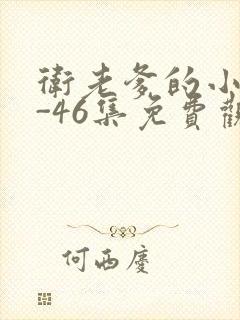 衛老爹的小
-46集免費觀
何西慶